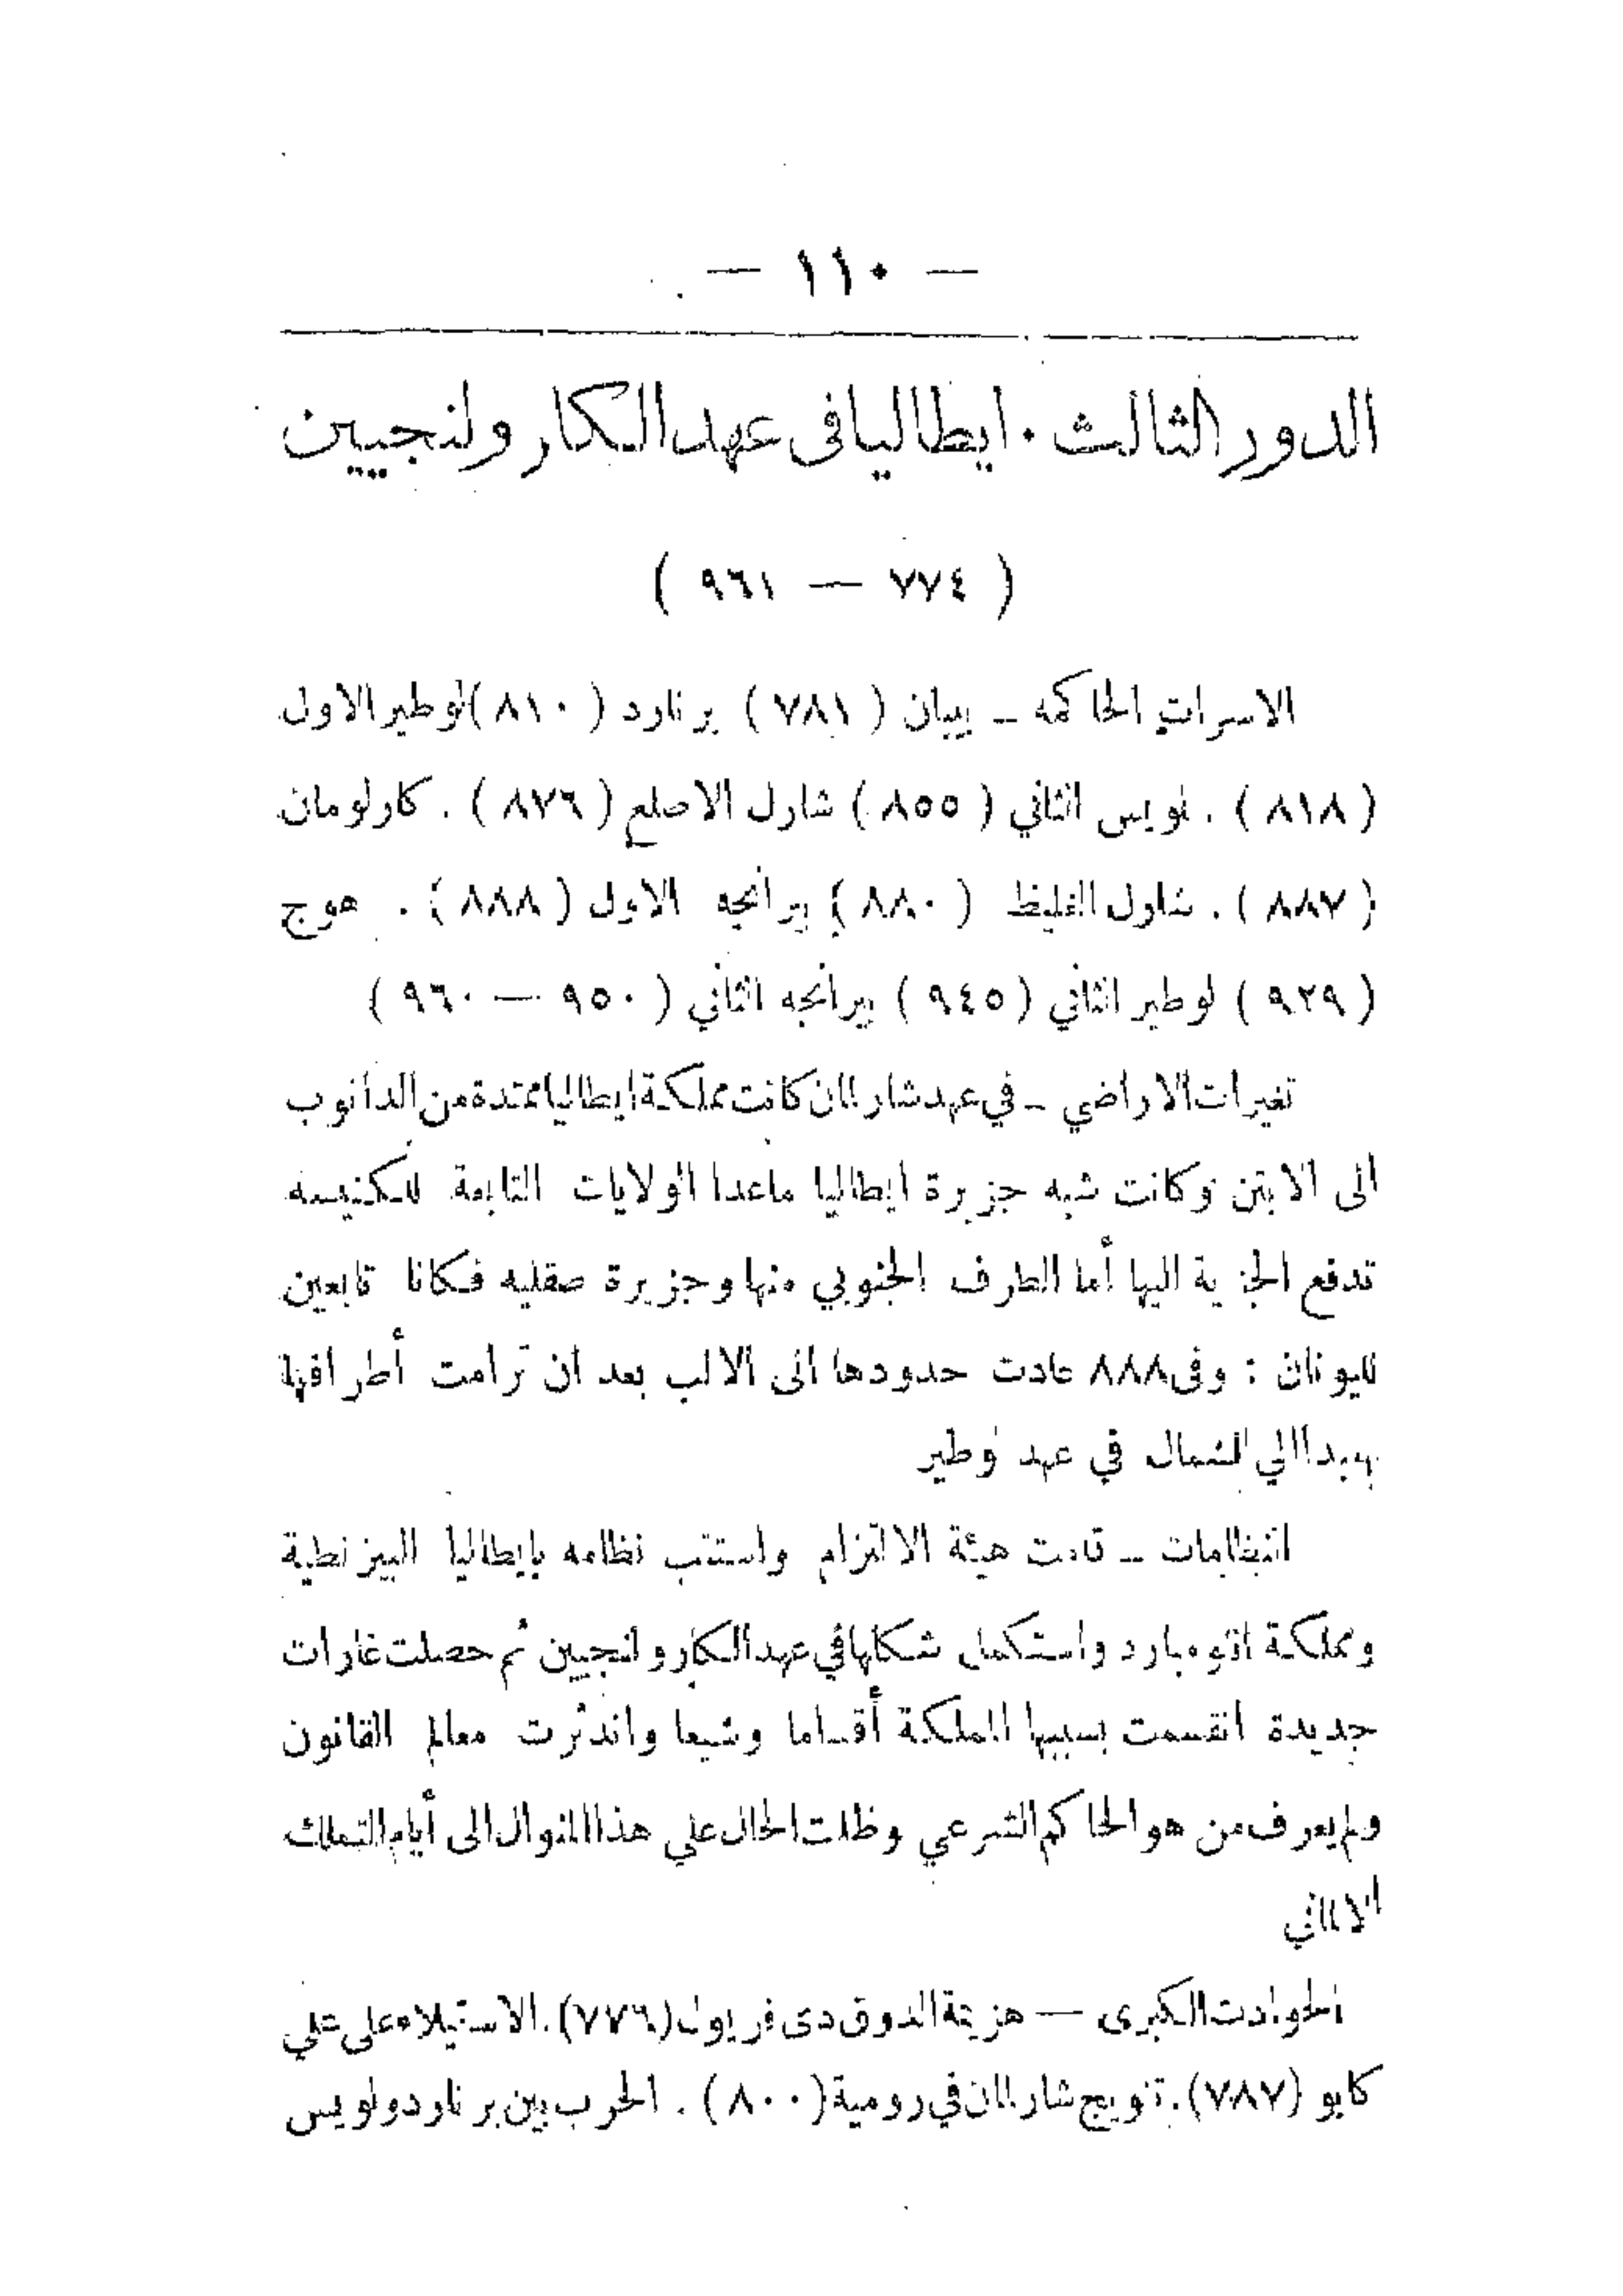 — ١١٠ —
الدور الثالث . ايطاليا فى عهد الكارولنجيين
( ٧٧٤ — ٩٦١ )
الاسرات الحاكمه ــ بيبان ( ٧٨١ ) برنارد ( ٨١٠ ) لوطير الاول
( ٨١٨ ) . لويس الثاني ( ٨٥٥ ) شارل الاصلع ( ٨٧٦ ) . كارلومان
( ٨٨٧ ) . شاول الغليظ ( ٨٨٠ ) بيرانجه الاول ( ٨٨٨ ) . هوج
( ٩٢٩ ) لوطير الثاني ( ٩٤٥ ) بيرانجه الثاني ( ٩٥٠ — ٩٦٠ )
تغيرات الاراضي ــ في عهد شارلمان كانت مملكة ايطاليا ممتدة من الدانوب
الى الابتن وكانت شبه جزيرة ايطاليا ماعدا الولايات التابعة للكنيسه
تدفع الجزية اليها أما الطرف الجنوبي منها وجزيرة صقليه فكانا تابعين
لليونان : وفى ٨٨٨ عادت حدودها الى الالب بعد ان ترامت أطرافها
بعيدا الي الشمال في عهد لوطير
انتظامات ــ قامت هيئة الالتزام واستتب نظامه بايطاليا البيزنطية
ومملكة اللومبارد واستكمل شكلها في عهد الكارولنجيين ثم حصلت غارات
جديدة انقسمت بسببها المملكة أقساما وشيعا واندثرت معالم القانون
ولم يعرف من هو الحاكم الشرعي وظلت الحال علي هذا المنوال الى أيام التملك
الالماني
الحوادت الكبرى — هزيمة الدوق دى فريول (٧٧٦). الاستيلاء على علي
كابو (٧٨٧). تتويج شارلمان في رومية (٨٠٠) . الحرب بين برنارد ولويس